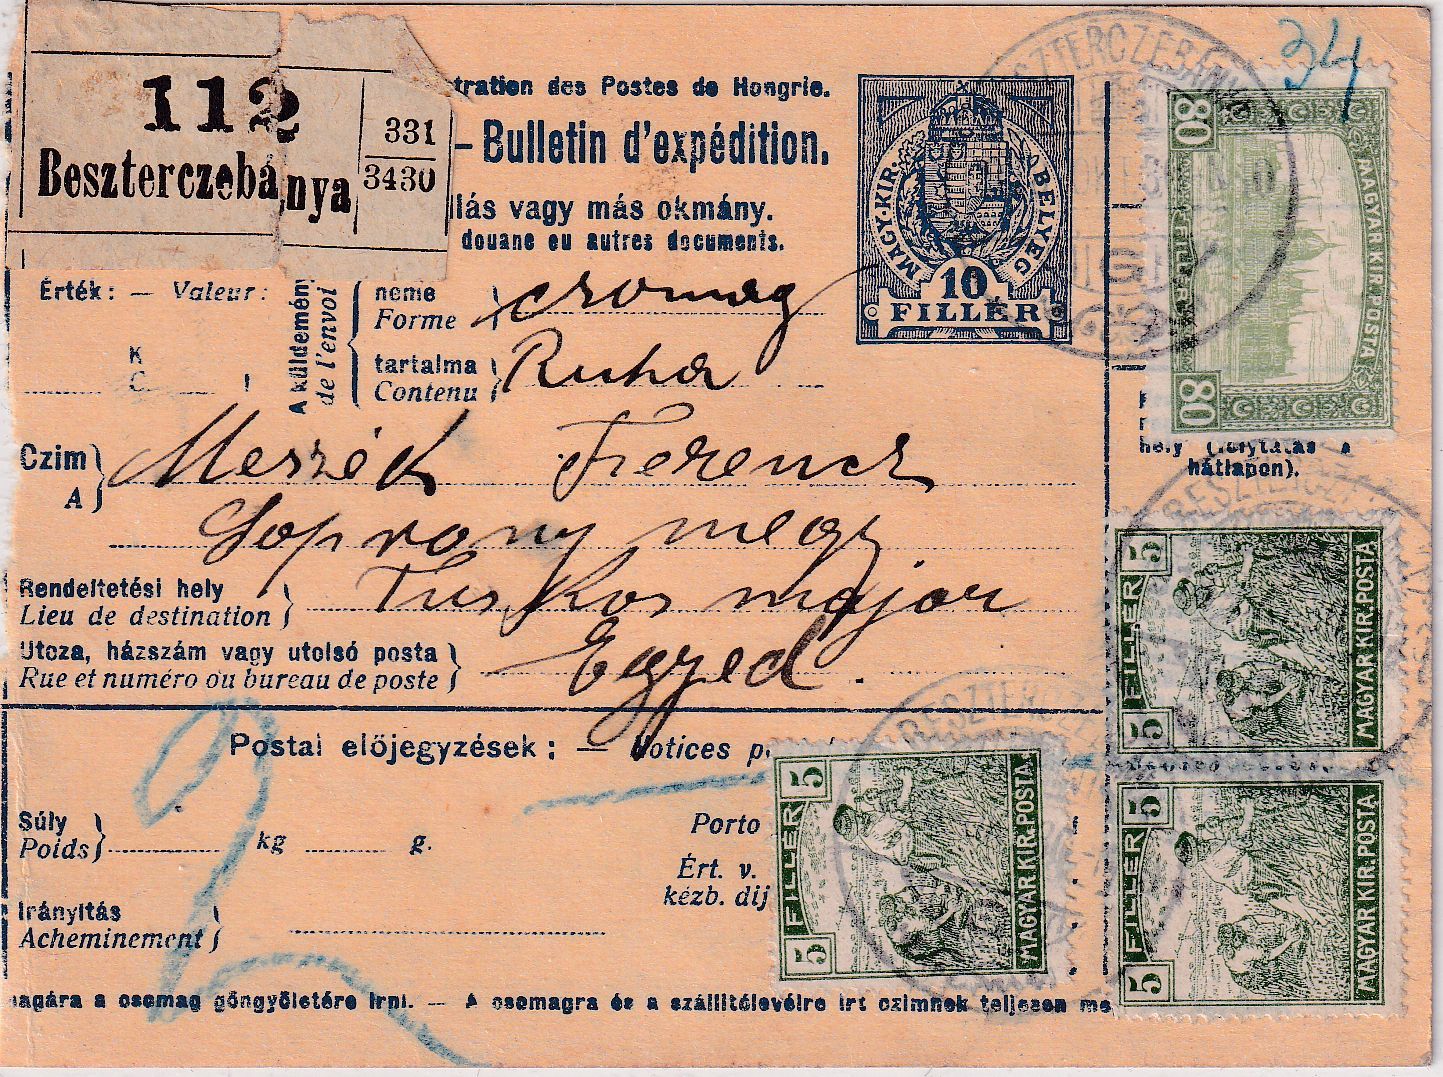 112
Beszterczebánya
331
3430
tration des Postes de Hongrie.
– Bulletin d'expédition.
llás vagy más okmány.
douane eu autres documents.
MAGY·KIR· BELYEG
10
FILLÉR
34
80
MAGYAR KIR. POSTA
80
Érték: — Valeur:
K
C
A küldemény
de l'envoi
neme
Forme
csomag
tartalma
Contenu
Ruha
Czim
A
Ferencz
Soprony megy
hely (folytatás a
hátlapon).
Rendeltetési hely
Lieu de destination
major
Utcza, házszám vagy utolsó posta
Rue et numéro ou bureau de poste
Egyed.
5 FILLÉR 5
MAGYAR KIR. POSTA
Postai előjegyzések: — Notices p
2
Súly
Poids
kg
g.
Porto
Ért. v.
kézb. dij
5 FILLÉR 5
MAGYAR KIR. POSTA
5 FILLÉR 5
MAGYAR KIR. POSTA
Irányitás
Acheminement
magára a csomag göngyöletére irni. — A csomagra és a szállitólevélre irt czimnek teljesen me